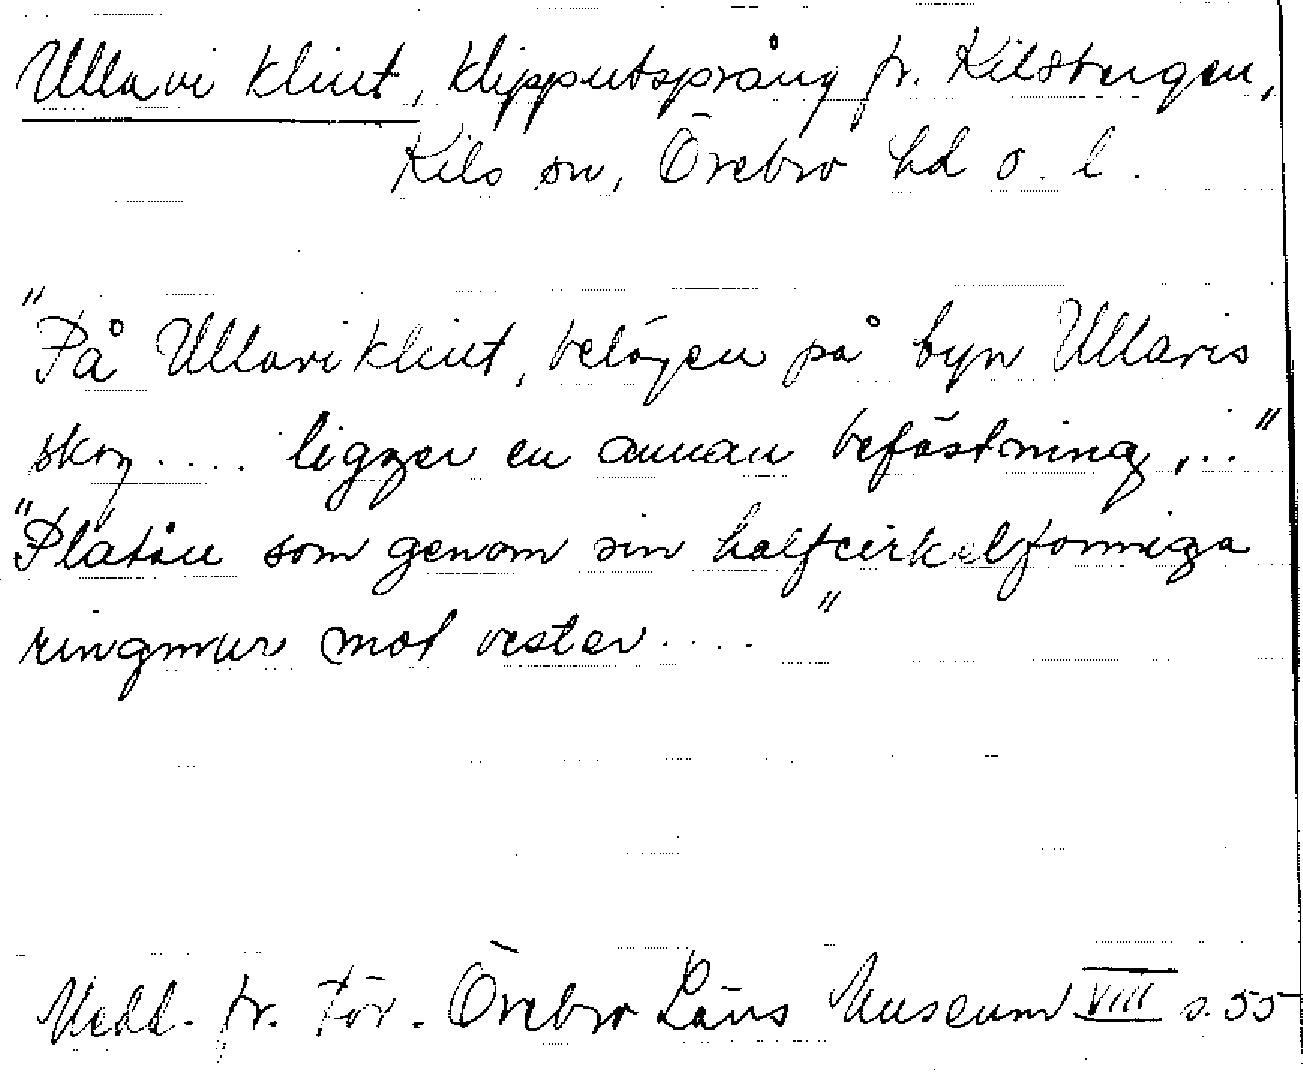 Ullavi klint, klipputsprång fr. Kilsbergen,
Kils sn, Örebro hd o. l.
"På Ullavi klint, belägen på byn Ullavis
skog .... ligger en annan befästning ,.."
"Platån som genom sin halfcirkelformiga
ringmur mot vester ...."
Medd. fr. För. Örebro Läns Museum VIII s. 55